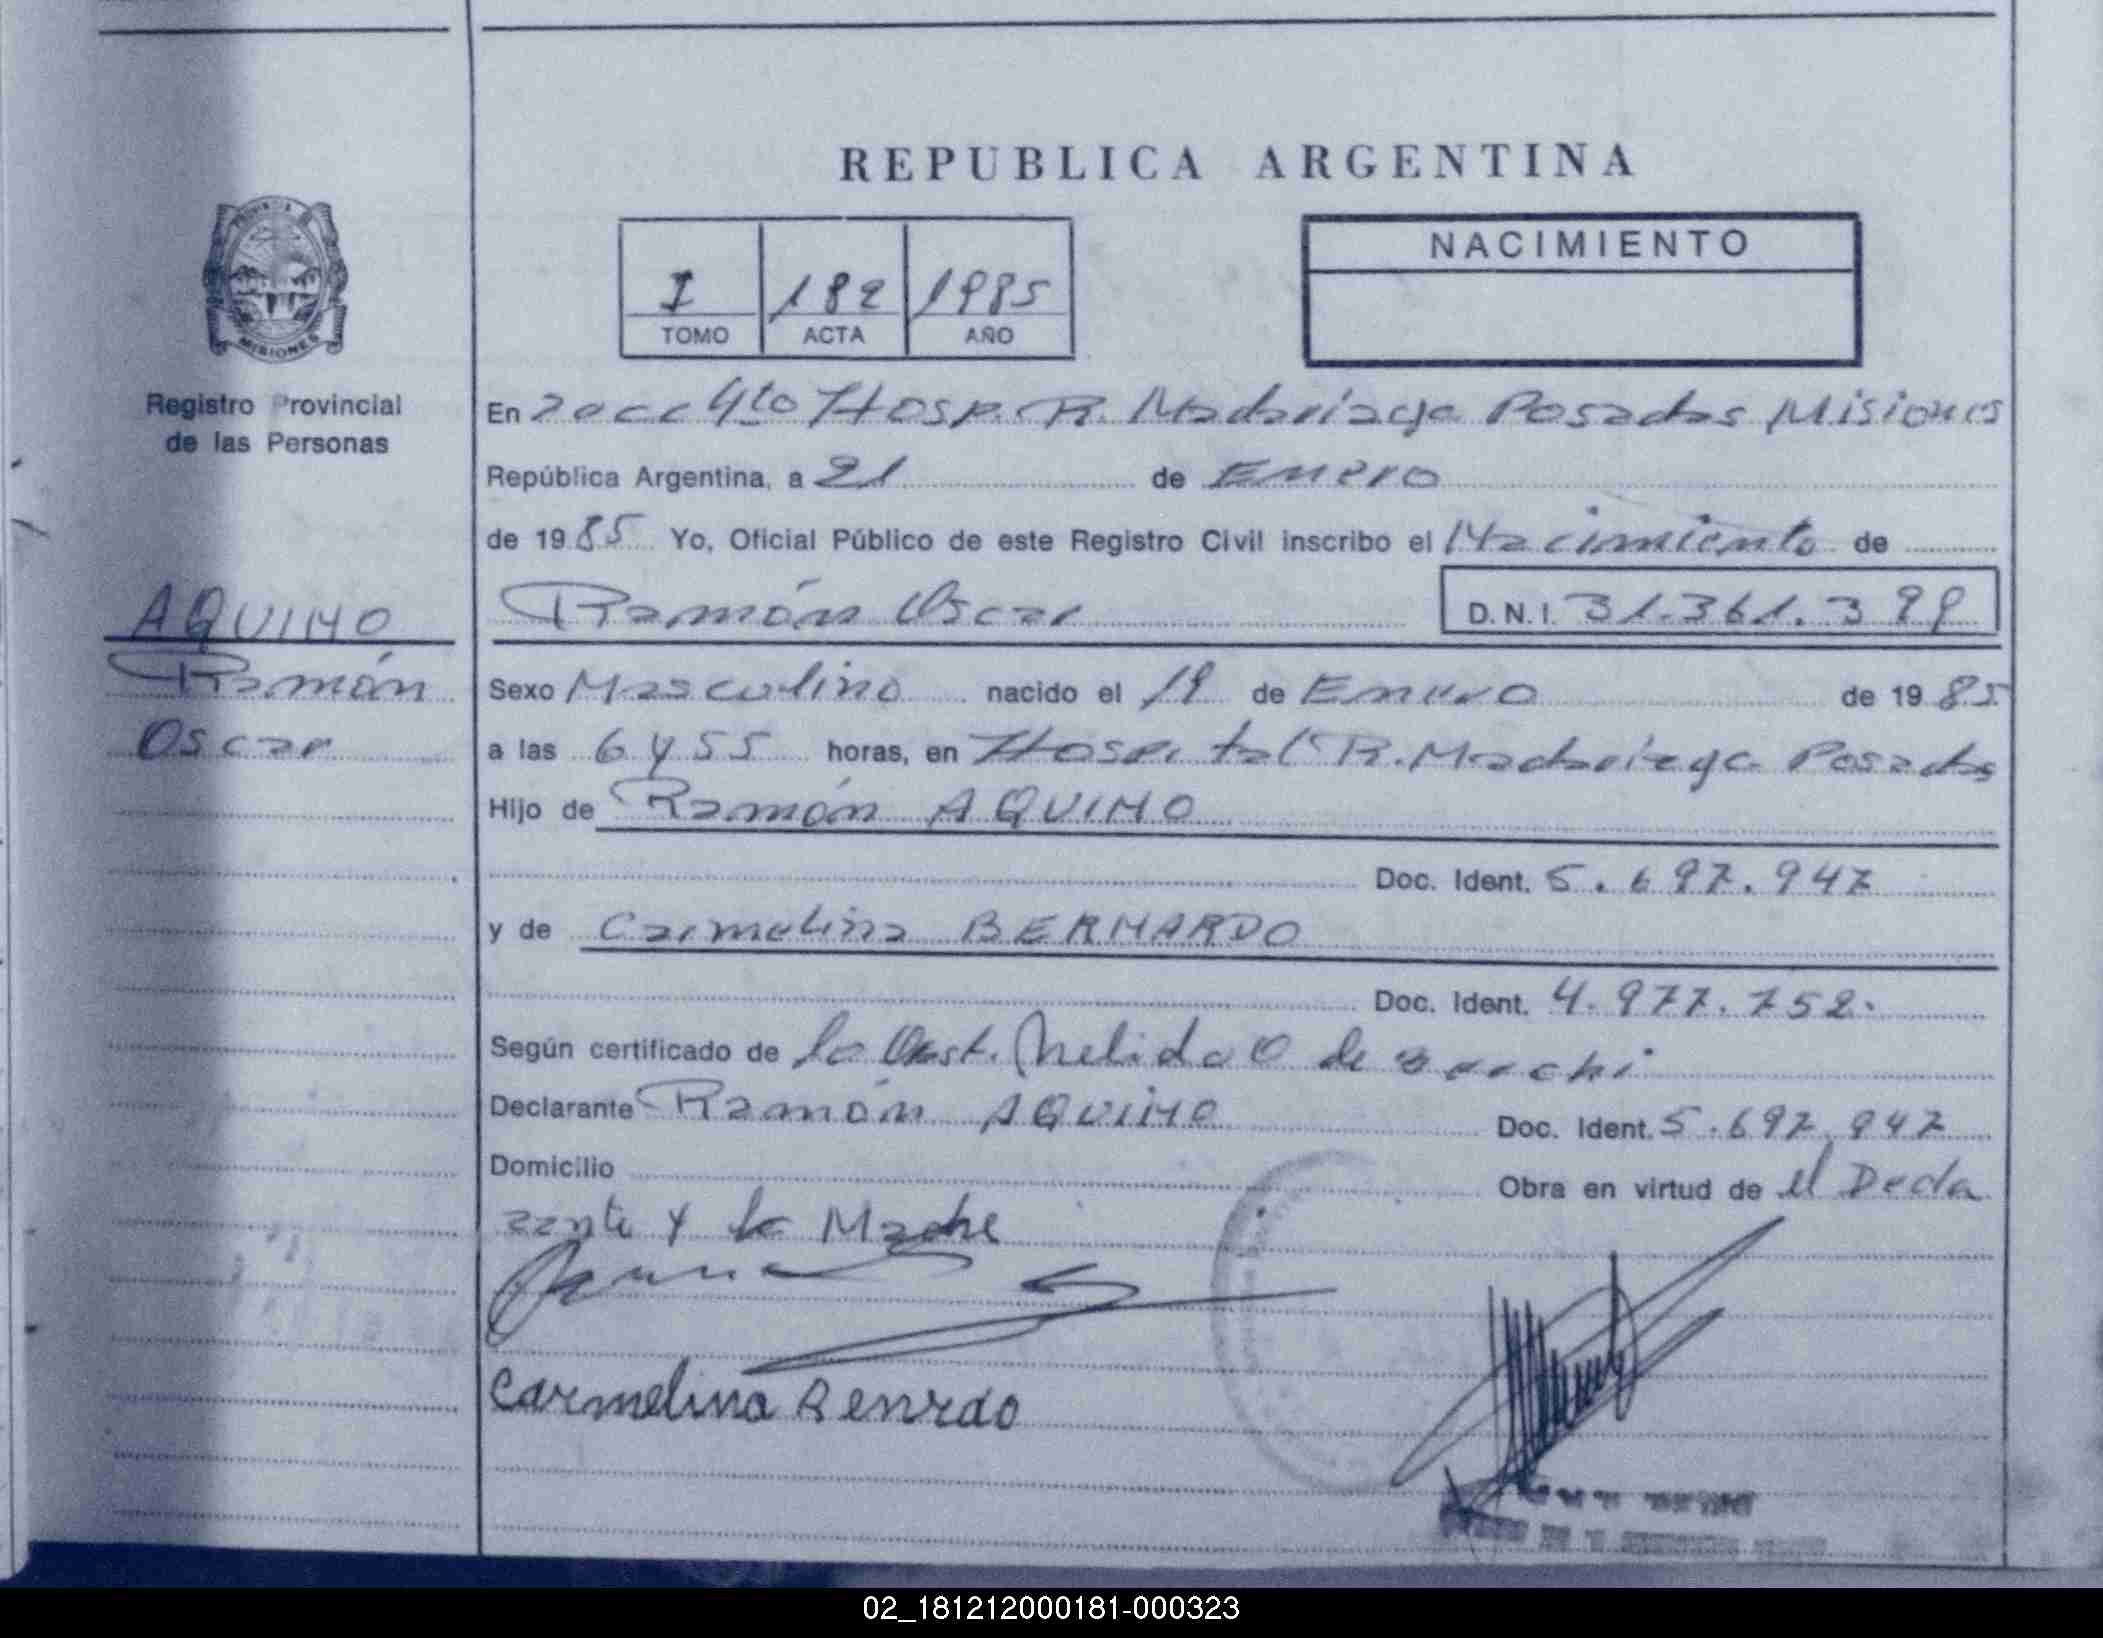 REPUBLICA ARGENTINA
PROVINCIA
MISIONES
Registro Provincial
de las Personas
I 182 1985
TOMO ACTA AÑO
NACIMIENTO
En 4to Hosp. R. Madariaga Posadas Misiones
República Argentina, a 21 de Enero
de 1985 Yo, Oficial Público de este Registro Civil inscribo el Nacimiento de
AQUINO
Ramón
Oscar
Ramón Oscar D.N.I. 31.361.399
Sexo Masculino nacido el 19 de Enero de 1985
a las 6 y 55 horas, en Hospital R. Madariaga Posadas
Hijo de Ramón AQUINO
Doc. Ident. 5.697.947
y de Carmelina BERNARDO
Doc. Ident. 4.977.752.
Según certificado de la Obst. Nelida O de
Declarante Ramón AQUINO Doc. Ident. 5.697.947
Domicilio
Obra en virtud de el Decla
rante y la Madre
Carmelina Benrdo
02_181212000181-000323